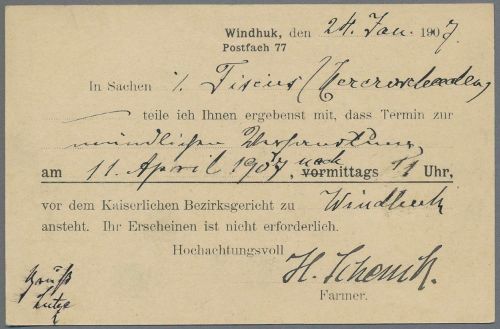 Windhuk, den 24. Jan. 1907.
Postfach 77
In Sachen /. Fiscus (Hereroschaden)
teile ich Ihnen ergebenst mit, dass Termin zur
mündlichen Verhandlung
am 11. April 1907, nach
vormittags 11 Uhr,
vor dem Kaiserlichen Bezirksgericht zu Windhuk
ansteht. Ihr Erscheinen ist nicht erforderlich.
Hochachtungsvoll
H. Schenk.
Farmer.